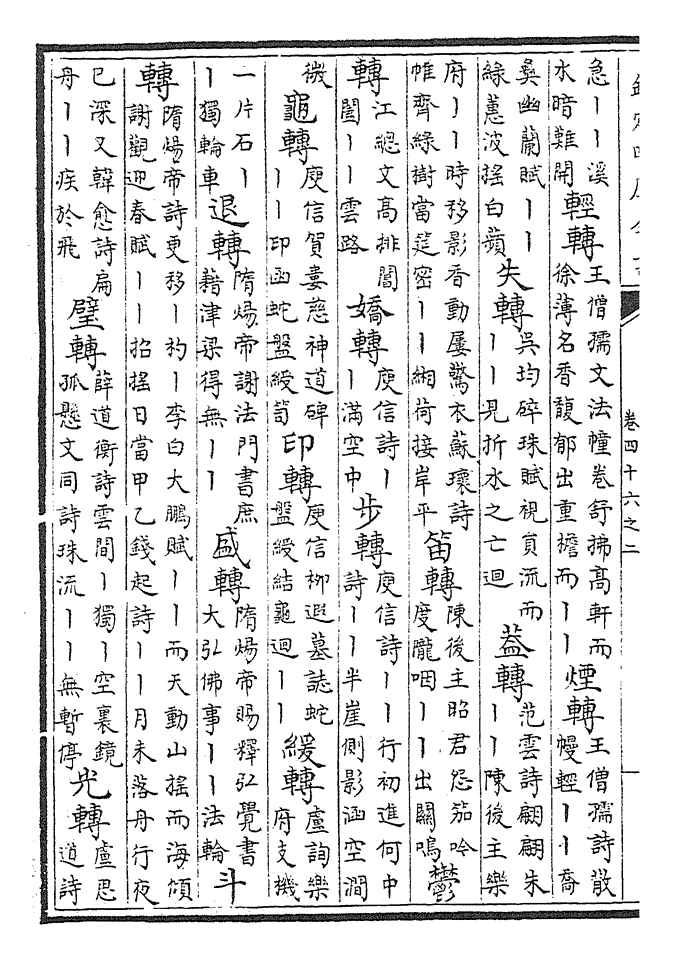 卷四十六之二
急丨丨溪水暗難開輕轉王僧孺文法幢卷舒拂髙軒而徐薄名香馥郁出重檐而丨丨煙轉王僧孺詩散幔輕丨丨喬
彛幽蘭賦丨丨緑蕙波搖白蘋失轉吳均碎珠賦視員流而丨丨見折水之亡迴葢轉范雲詩翩翩朱丨丨陳後主樂
府丨丨時移影香動屢驚衣蘇瓌詩帷齊緑樹當筵密丨丨緗荷接岸平笛轉陳後主昭君怨笳吟度隴咽丨丨出關鳴鬱
轉江總文髙排閶闔丨丨雲路嬌轉庾信詩丨丨滿空中步轉庾信詩丨丨行初進何中詩丨丨半崖側影涵空澗
微龜轉庾信賀婁慈神道碑丨丨印函蛇盤綬笥印轉庾信栁遐墓誌蛇盤綬結龜迴丨丨緩轉盧詢樂府支機
一片石丨丨獨輪車退轉隋煬帝謝法門書庶藉津梁得無丨丨盛轉隋煬帝賜釋弘覺書大弘佛事丨丨法輪斗
轉隋煬帝詩更移丨杓丨李白大鵬賦丨丨而天動山搖而海傾謝觀迎春賦丨丨招搖日當甲乙錢起詩丨丨月未落舟行夜
已深又韓愈詩扁舟丨丨疾於飛璧轉薛道衡詩雲間丨獨丨空裏鏡孤懸文同詩珠流丨丨無暫停光轉盧思道詩